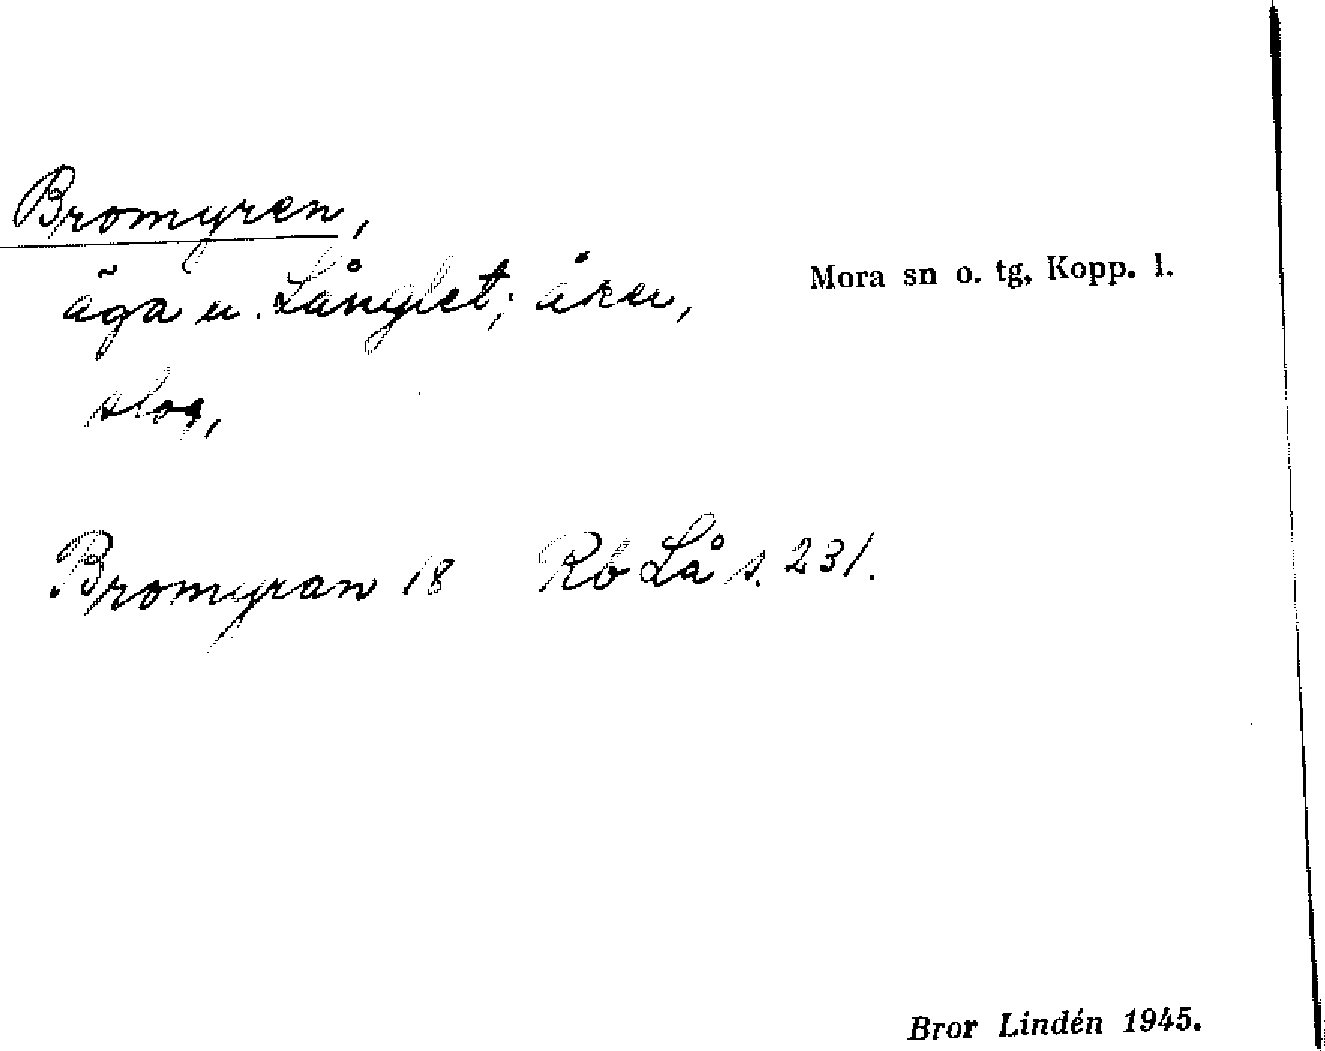 Bromyren,
Mora sn o. tg, Kopp. l.
äga u. Långlet; åker,
slog,
Bromyran 18 Rb Lå s. 231.
Bror Lindén 1945.